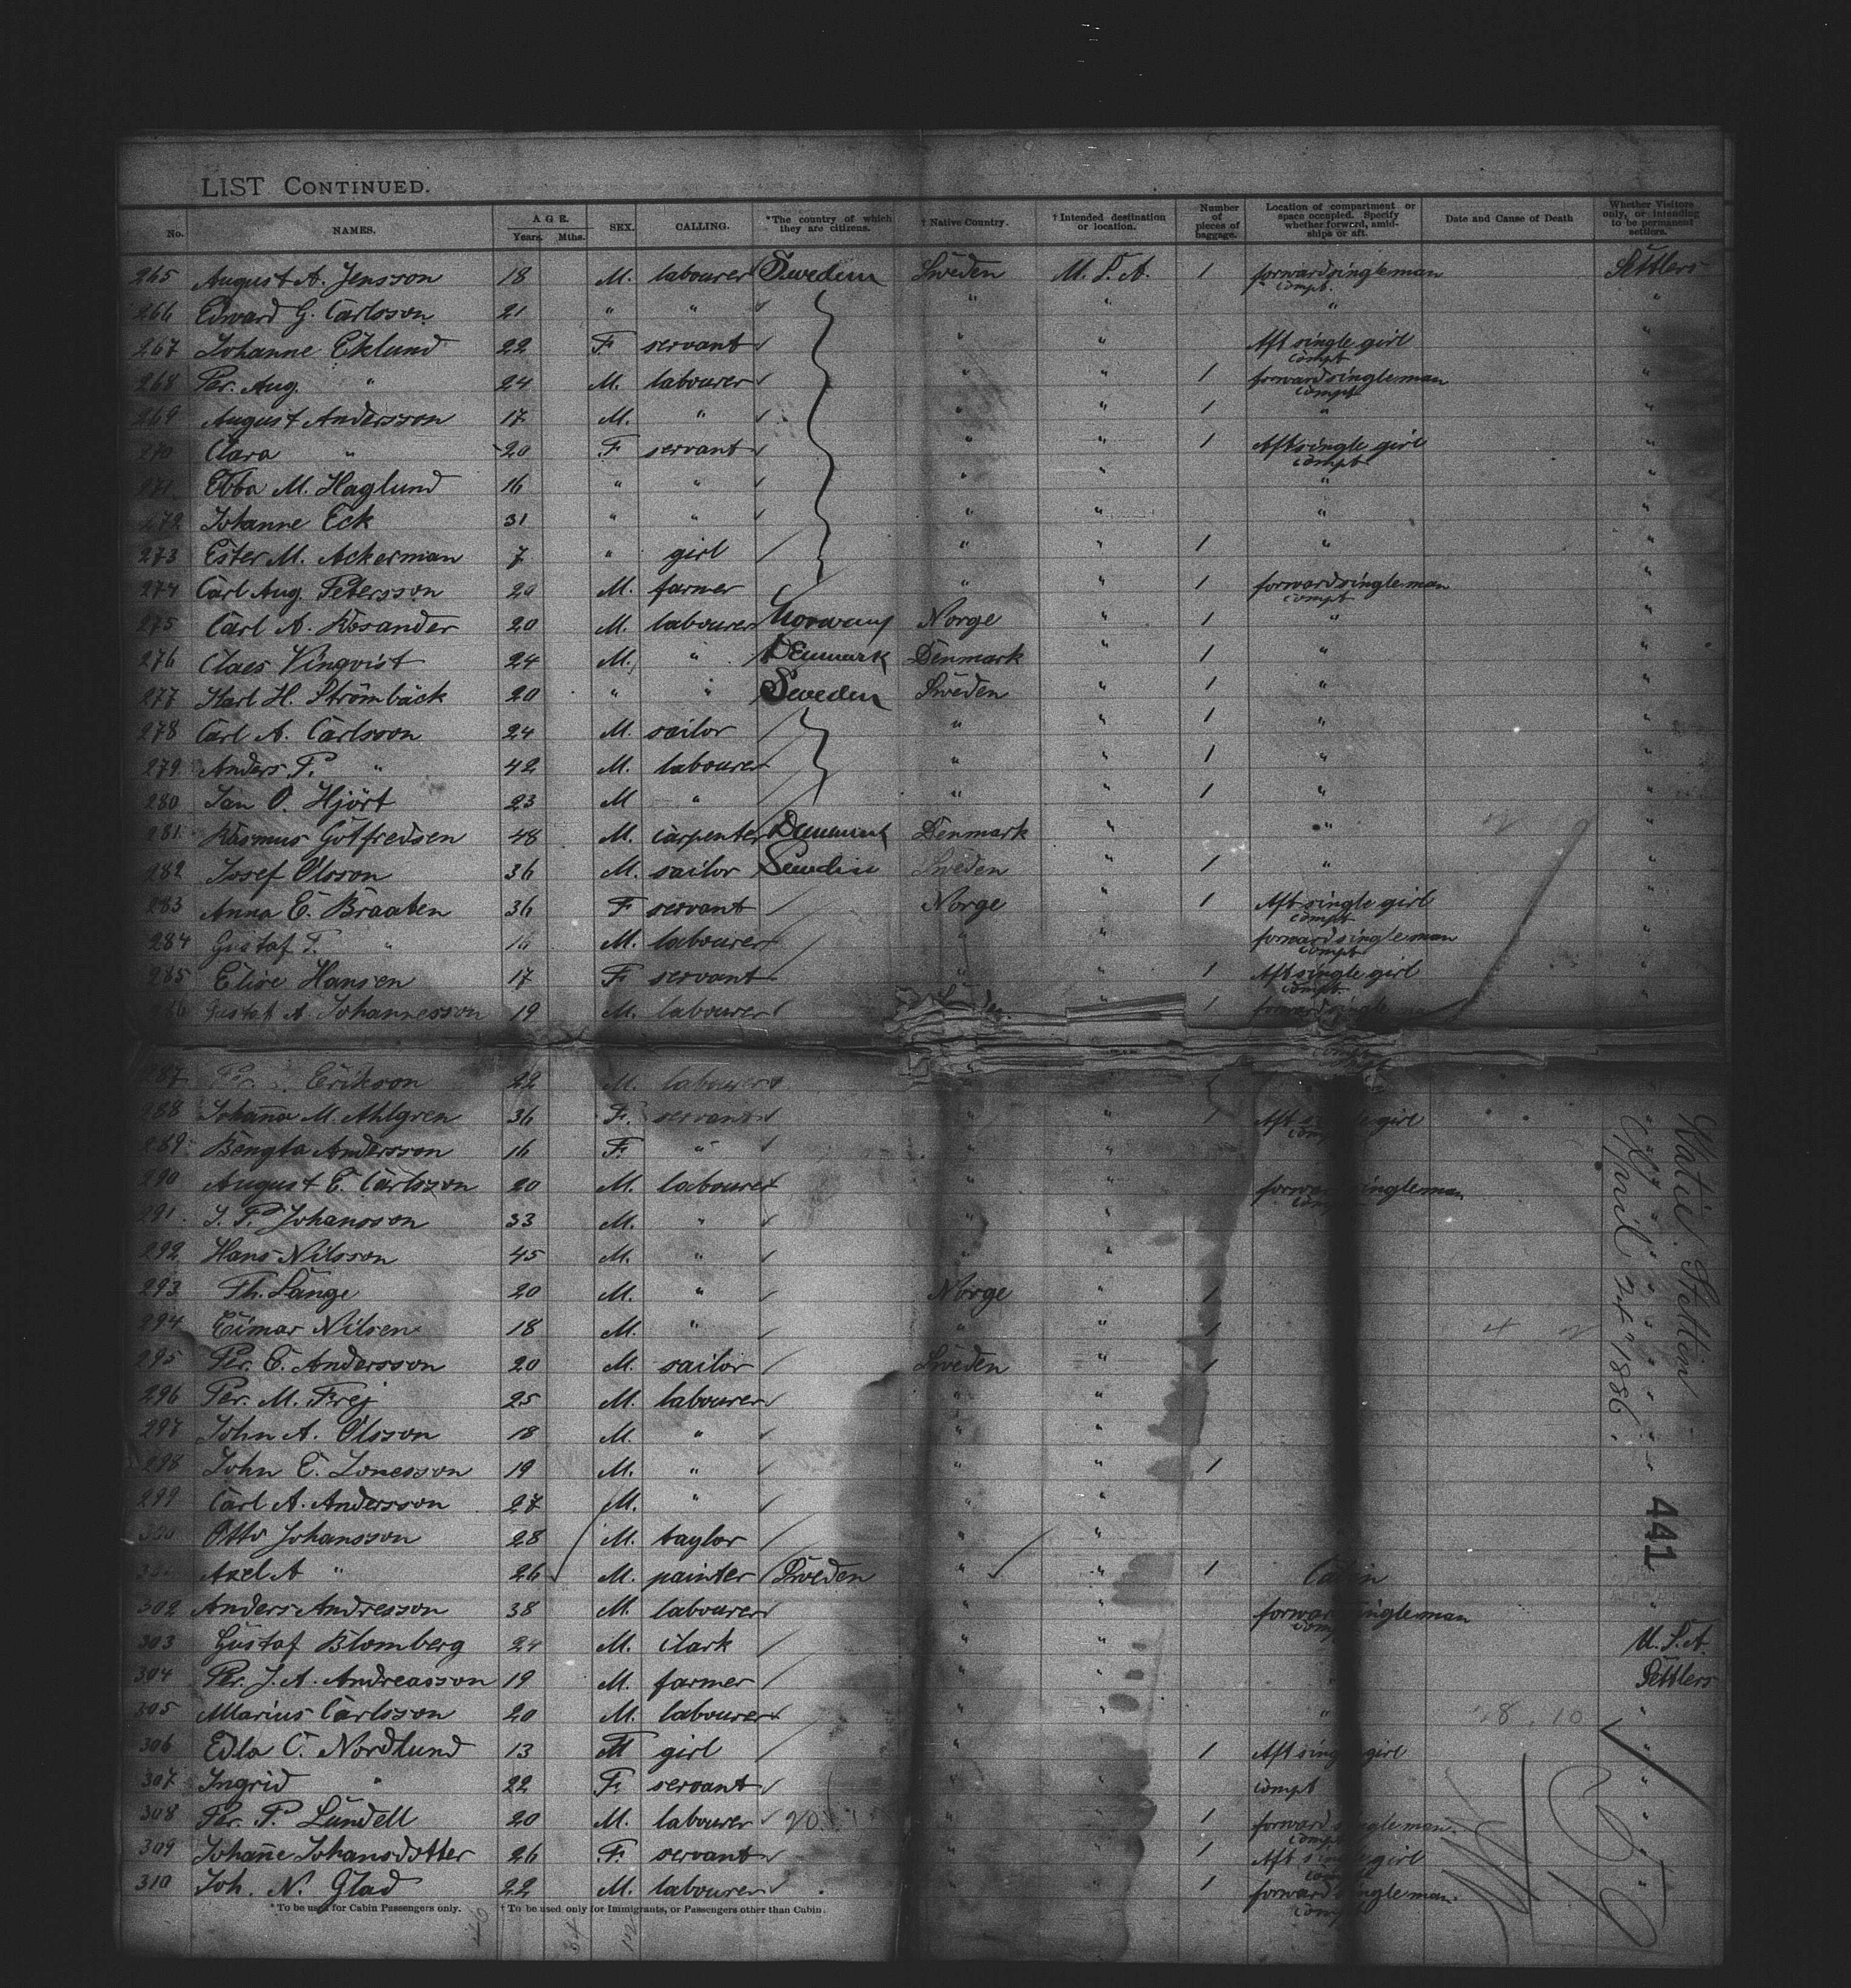 LIST CONTINUED.
No. NAMES. AGE. Years. Mths. SEX. CALLING. *The country of which they are citizens. † Native Country. † Intended destination or location. Number of pieces of baggage. Location of compartment or space occupied. Specify whether forward, amidships or aft. Date and Cause of Death Whether Visitors only, or intending to be permanent settlers.
265 August A. Jensson 18 M. labourer Sweden Sweden U.S.A. 1 forward single man compt. Settlers
266 Edward G. Carlsson 21 " " " " " "
267 Johanne Eklund 22 F servant " " Aft single girl compt "
268 Per. Aug. " 24 M. labourer " " 1 forward single man compt "
269 August Andersson 17 M. " " " 1 " "
270 Clara " 20 F servant " " 1 Aft single girl compt "
271 Ebba M. Haglund 16 " " " " " "
272 Johanne Eck 31 " " " " " "
273 Ester M. Ackerman 7 " girl " " 1 " "
274 Carl Aug. Petersson 20 M. farmer " " 1 forward single man compt "
275 Carl A. Rosander 20 M. labourer Norway Norge " 1 " "
276 Claes Vinqvist 24 M. " Denmark Denmark " 1 " "
277 Karl H. Strömbäck 20 " " Sweden Sweden " 1 " "
278 Carl A. Carlsson 24 M. sailor " " 1 " "
279 Anders P. " 42 M. labourer " " 1 " "
280 Jan O. Hjört 23 M " " " 1 " "
281 Rasmus Gotfredsen 48 M. carpenter Denmark Denmark " " "
282 Josef Olsson 36 M. sailor Sweden Sweden " 1 " "
283 Anna E. Braaten 36 F servant Norge " 1 Aft single girl compt "
284 Gustaf T. " M. labourer " " forward single man compt "
285 Elise Hansen 17 F servant " " 1 Aft single girl compt. "
286 Gustaf A. Johannesson 19 M. labourer " 1 forward single "
287 Erikson 22 M. labourer compt
288 Johanna M. Ahlgren 36 F. servant " " 1 Aft single girl comp "
289 Bengta Andersson 16 F. " " "
290 August E. Carlsson 20 M. labourer " " forward single man comp
291 J. P. Johansson 33 M. " " "
292 Hans Nilsson 45 M. " " "
293 Th. Lange 20 M. " Norge " 1
294 Eimar Nilsen 18 M. " " " 1
295 Per. E. Andersson 20 M. sailor Sweden " 1
296 Per. M. Frej 25 M. labourer " "
297 John A. Olsson 18 M. " " "
298 John E. Jonesson 19 M. " " " 1
299 Carl A. Andersson 27 M. " " "
300 Otto Johansson 28 M. taylor " "
Axel A " 26 M. painter Sweden " " 1 Cabin
302 Anders Andresson 38 M. labourer " " forward single man comp "
303 Gustaf Blomberg 24 M. clark " " U.S.A.
304 Per. J. A. Andreasson 19 M. farmer " " Settlers
305 Marius Carlsson 20 M. labourer " " " "
306 Edla C. Nordlund 13 F girl " " 1 Aft single girl "
307 Ingrid " 22 F. servant " " compt "
308 Per. P. Lundell 20 M. labourer " " 1 forward single man. compt "
309 Johanne Johansdotter 26 F. servant " " 1 Aft single girl "
310 Joh. N. Glad 22 M. labourer " " 1 forward single man. comp "
Katie. Stettin
April 24" 1886.
441
*To be used for Cabin Passengers only. † To be used only for Immigrants, or Passengers other than Cabin.